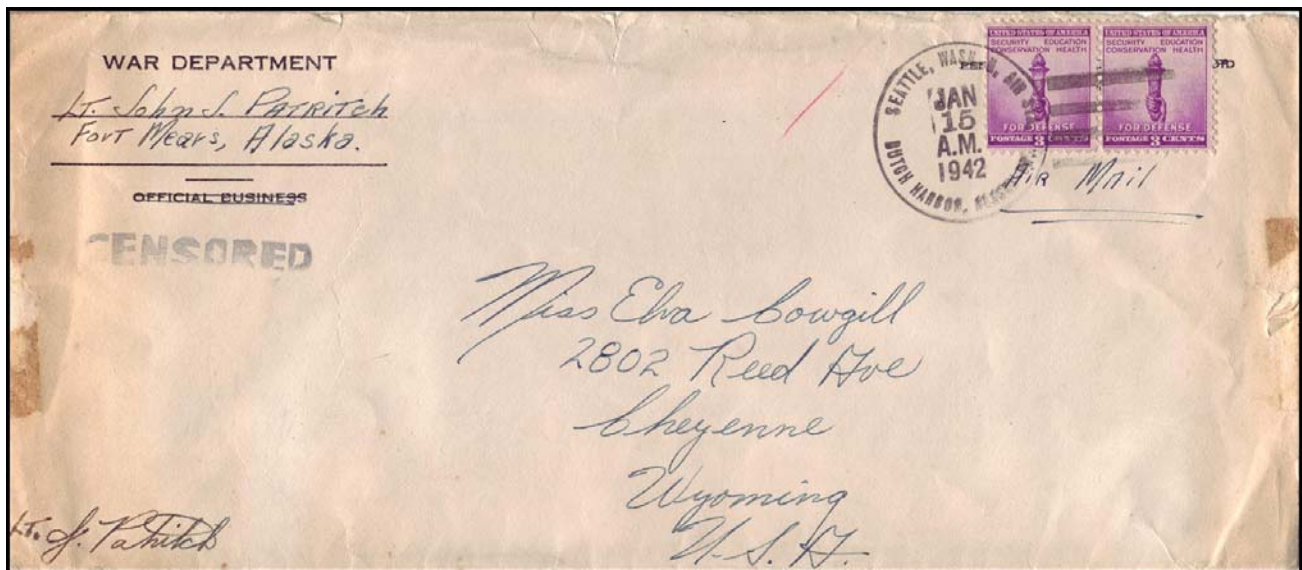 WAR DEPARTMENT
Lt. John J. PATRITCH
Fort Mears, Alaska.
OFFICIAL BUSINESS
CENSORED
SEATTLE, WASH. U. AIR
JAN
15
A.M.
1942
DUTCH HARBOR,
UNITED STATES OF AMERICA
SECURITY EDUCATION
CONSERVATION HEALTH
FOR DEFENSE
POSTAGE 3 CENTS
UNITED STATES OF AMERICA
SECURITY EDUCATION
CONSERVATION HEALTH
FOR DEFENSE
POSTAGE 3 CENTS
AIR MAIL
Miss Elva Cowgill
2802 Reed Ave
Cheyenne
Wyoming
U.S.A.
LT. J. Patritch